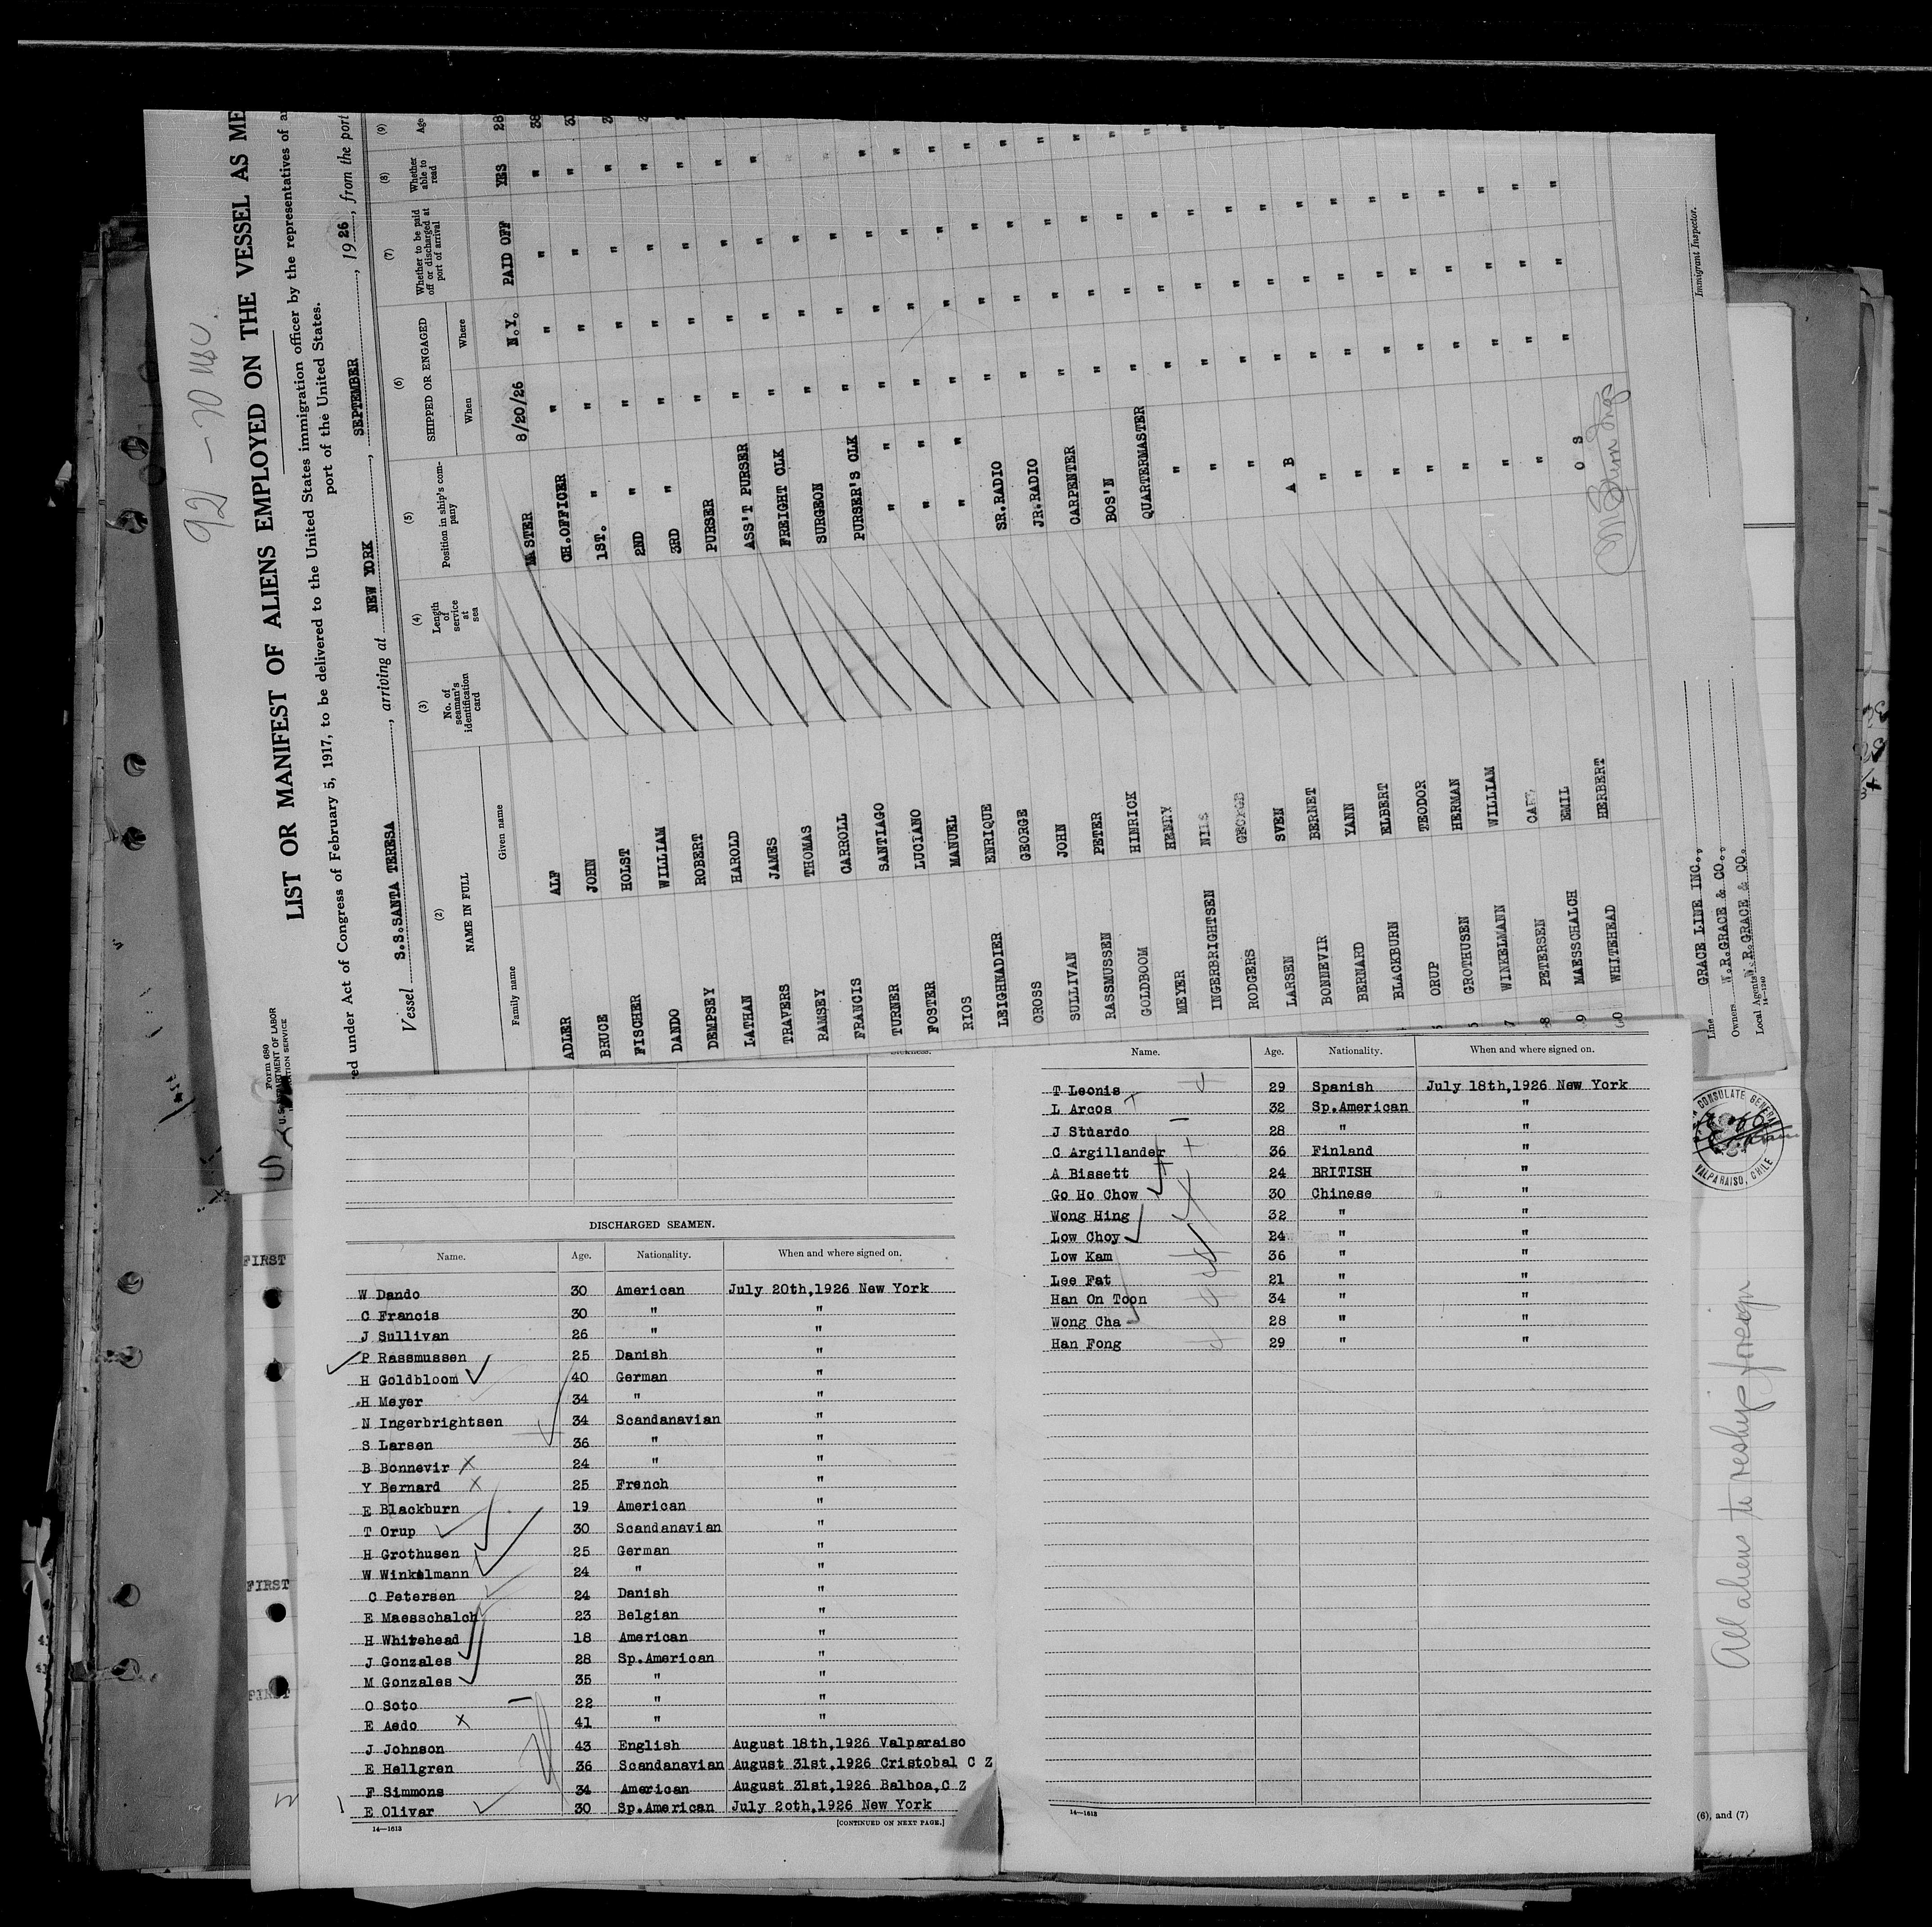 LIST OR MANIFEST OF ALIENS EMPLOYED ON THE VESSEL AS ME
red under Act of Congress of February 5, 1917, to be delivered to the United States immigration officer by the representatives of a
port of the United States.
Form 680
U. S. DEPARTMENT OF LABOR
Vessel S.S.SANTA TERESA, arriving at NEW YORK, SEPTEMBER, 1926, from the port
(2) (3) (4) (5) (6) (7) (8) (9)
NAME IN FULL No. of seaman's identification card Length of service at sea Position in ship's company SHIPPED OR ENGAGED Whether to be paid off or discharged at port of arrival Whether able to read Age
Family name Given name When Where
ADLER ALF MASTER 8/20/26 N.Y. PAID OFF YES 28
BRUCE JOHN CH.OFFICER " " " " 38
FISCHER HOLST 1ST. " " " " "
DANDO WILLIAM 2ND " " " " "
DEMPSEY ROBERT 3RD " " " " "
LATHAN HAROLD PURSER " " " "
TRAVERS JAMES ASS'T PURSER " " " "
RAMSEY THOMAS FREIGHT CLK " " " "
FRANCIS CARROLL SURGEON " " " "
TURNER SANTIAGO PURSER'S CLK " " " "
FOSTER LUCIANO " " " " " "
RIOS MANUEL " " " " " "
LEIGHNADIER ENRIQUE " " " " " "
CROSS GEORGE SR.RADIO " " " "
SULLIVAN JOHN JR.RADIO " " " "
RASSMUSSEN PETER CARPENTER " " " "
GOLDBOOM HINRICK BOS'N " " " "
MEYER HENRY QUARTERMASTER " " " "
INGERBRIGHTSEN NILS " " " " "
RODGERS GEORGE " " " " "
LARSEN SVEN " " " " "
BONNEVIR BERNET A B " " " "
BERNARD YANN " " " " "
BLACKBURN ELBERT " " " " "
ORUP TEODOR " " " " "
GROTHUSEN HERMAN " " " " "
WINKELMANN WILLIAM " " " " "
PETERSEN CARL " " " " "
MAESSCHALCH EMIL " " " " "
WHITEHEAD HERBERT O S
Line GRACE LINE INC.,
Owners W.R.GRACE & CO.,
Local Agents W.R.GRACE & CO.
14-1240
Immigrant Inspector.
DISCHARGED SEAMEN.
Name. Age. Nationality. When and where signed on.
W Dando 30 American July 20th,1926 New York
C Francis 30 " "
J Sullivan 26 " "
P Rassmussen 25 Danish "
H Goldbloom 40 German "
H Meyer 34 " "
N Ingerbrightsen 34 Scandanavian "
S Larsen 36 " "
B Bonnevir 24 " "
Y Bernard 25 French "
E Blackburn 19 American "
T Orup 30 Scandanavian "
H Grothusen 25 German "
W Winkelmann 24 " "
C Petersen 24 Danish "
E Maesschalch 23 Belgian "
H Whitehead 18 American "
J Gonzales 28 Sp.American "
M Gonzales 35 " "
O Soto 22 " "
E Aedo 41 " "
J Johnson 43 English August 18th,1926 Valparaiso
E Hellgren 36 Scandanavian August 31st,1926 Cristobal C Z
F Simmons 34 American August 31st,1926 Balboa,C Z
E Olivar 30 Sp.American July 20th,1926 New York
14—1613
[CONTINUED ON NEXT PAGE.]
Name. Age. Nationality. When and where signed on.
T Leonis 29 Spanish July 18th,1926 New York
L Arcos 32 Sp.American "
J Stuardo 28 " "
C Argillander 36 Finland "
A Bissett 24 BRITISH "
Go Ho Chow 30 Chinese "
Wong Hing 32 " "
Low Choy 24 " "
Low Kam 36 " "
Lee Fat 21 " "
Han On Toon 34 " "
Wong Cha 28 " "
Han Fong 29 " "
14—1613
FIRST
FIRST
FIRST
CONSULATE GENERAL
VALPARAISO, CHILE
All aliens to reship foreign
(6), and (7)